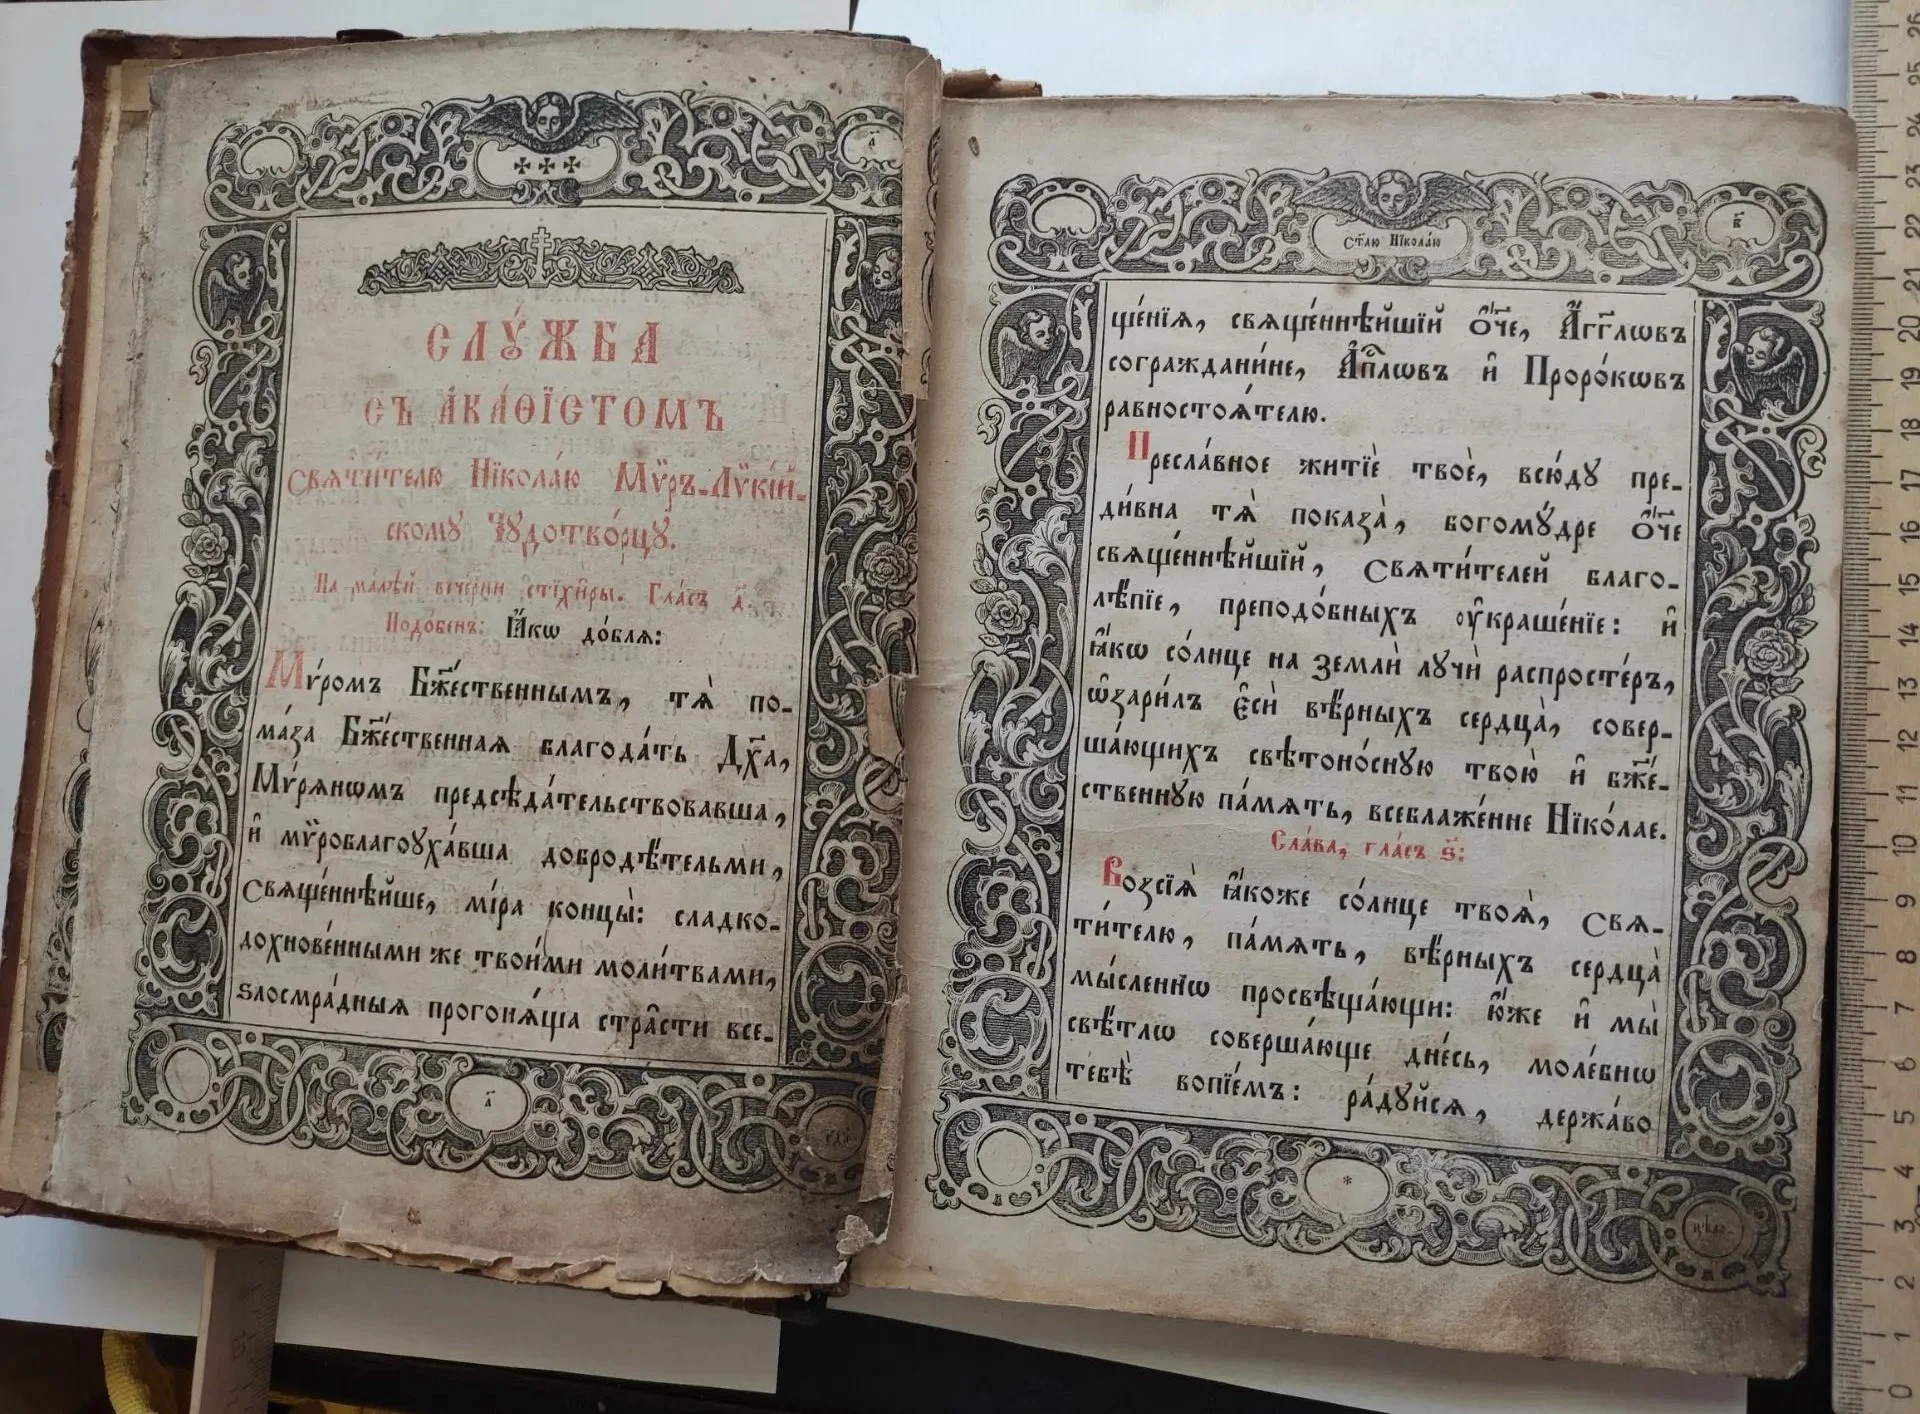 а҃
СЛУ́ЖБА
СЪ А҆КА́ѲЇСТОМЪ
Свѧти́телю Нїкола́ю Мѵ̈ръ-Лѷкі́й-
скому Чꙋдотво́рцꙋ.
На ма́лѣй вече́рни стїхи̑ры. Гла́съ а҃.
Подо́бенъ: Ꙗ҆́кѡ до́блѧ:
Мѵ́ромъ Бж҃е́ственнымъ, тѧ̀ по-
ма́за Бж҃е́ственнаѧ благода́ть Дх҃а,
Мѵ́рѧнѡмъ предсѣда́тельствовавша,
и҆ мѵ̈роблагоꙋха́вша добродѣ́тельми,
Свѧще́ннѣйше, мі́ра концы̀: сладко-
дохнове́нными же твои́ми моли́твами,
ѕлосмра́дныѧ прогонѧ́ѧ стра̑сти все-
а҃
Ст҃лю Нїкола́ю
в҃
ще́нїѧ, свѧще́ннѣйшїй ѻ҆́ч҃е, А҆́гг҃лѡвъ
согражданине, А҆п҃лѡвъ и҆ Проро́кѡвъ
равностоѧ́телю.
Пресла́вное житїѐ твоѐ, всю́дꙋ пре-
ди́вна тѧ̀ показа̀, богомꙋ́дре ѻ҆́ч҃е
свѧще́ннѣйшїй, Свѧти́телей благо-
лѣ́пїе, преподо́бныхъ ᲂу҆краше́нїе: и҆
ꙗ҆́кѡ со́лнце на землѝ лꙋчѝ распросте́ръ,
ѡ҆зари́лъ є҆сѝ вѣ́рныхъ сердца̀, совер-
ша́ющихъ свѣтоно́снꙋю твою̀ и҆ бж҃е́-
ственнꙋю па́мѧть, всеблаже́нне Нїко́лае.
Сла́ва, гла́съ ѕ҃:
Возсїѧ̀ ꙗ҆́коже со́лнце твоѧ̀, Свѧ-
ти́телю, па́мѧть, вѣ́рныхъ сердца̀
мы́сленнѡ просвѣща́ющи: ю҆́же и҆ мы̀
свѣ́тлѡ соверша́юще дне́сь, моле́бнѡ
тебѣ̀ вопїе́мъ: ра́дꙋйсѧ, держа́во
*